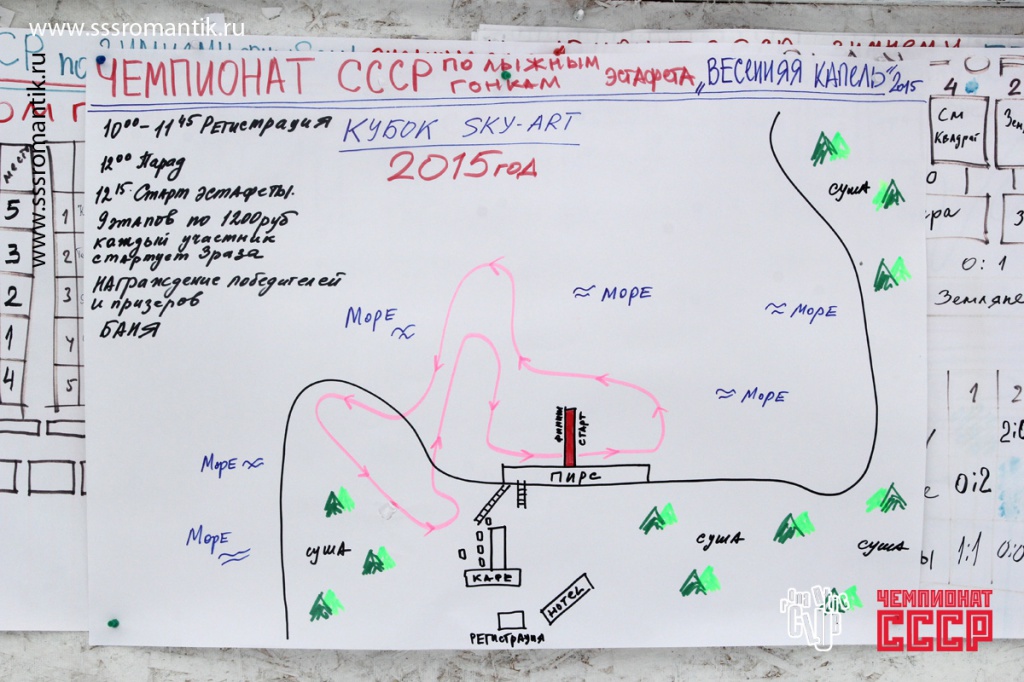 www.sssromantik.ru
www.sssromantik.ru
ЧЕМПИОНАТ СССР ПО ЛЫЖНЫМ ГОНКАМ ЭСТАФЕТА „ВЕСЕННЯЯ КАПЕЛЬ" 2015
10⁰⁰-11⁴⁵ Регистрация
КУБОК SKY-ART
2015 год
12⁰⁰ Парад
12¹⁵ Старт эстафеты.
9 этапов по 1200 руб
каждый участник
стартует 3 раза
Награждение победителей
и призеров
БАНЯ
суша
≈ Море
Море ≈
≈ Море
≈ Море
Море ≈
Море ≈
финиш
старт
ПИРС
суша
суша
суша
КАФЕ
HOTEL
РЕГИСТРАЦИЯ
место
5
3
2
1
4
1
2
3
4
5
4
2
См
Квадрат
0:1
Земляне
1
2
0:2
1:1
ЧЕМПИОНАТ
СССР